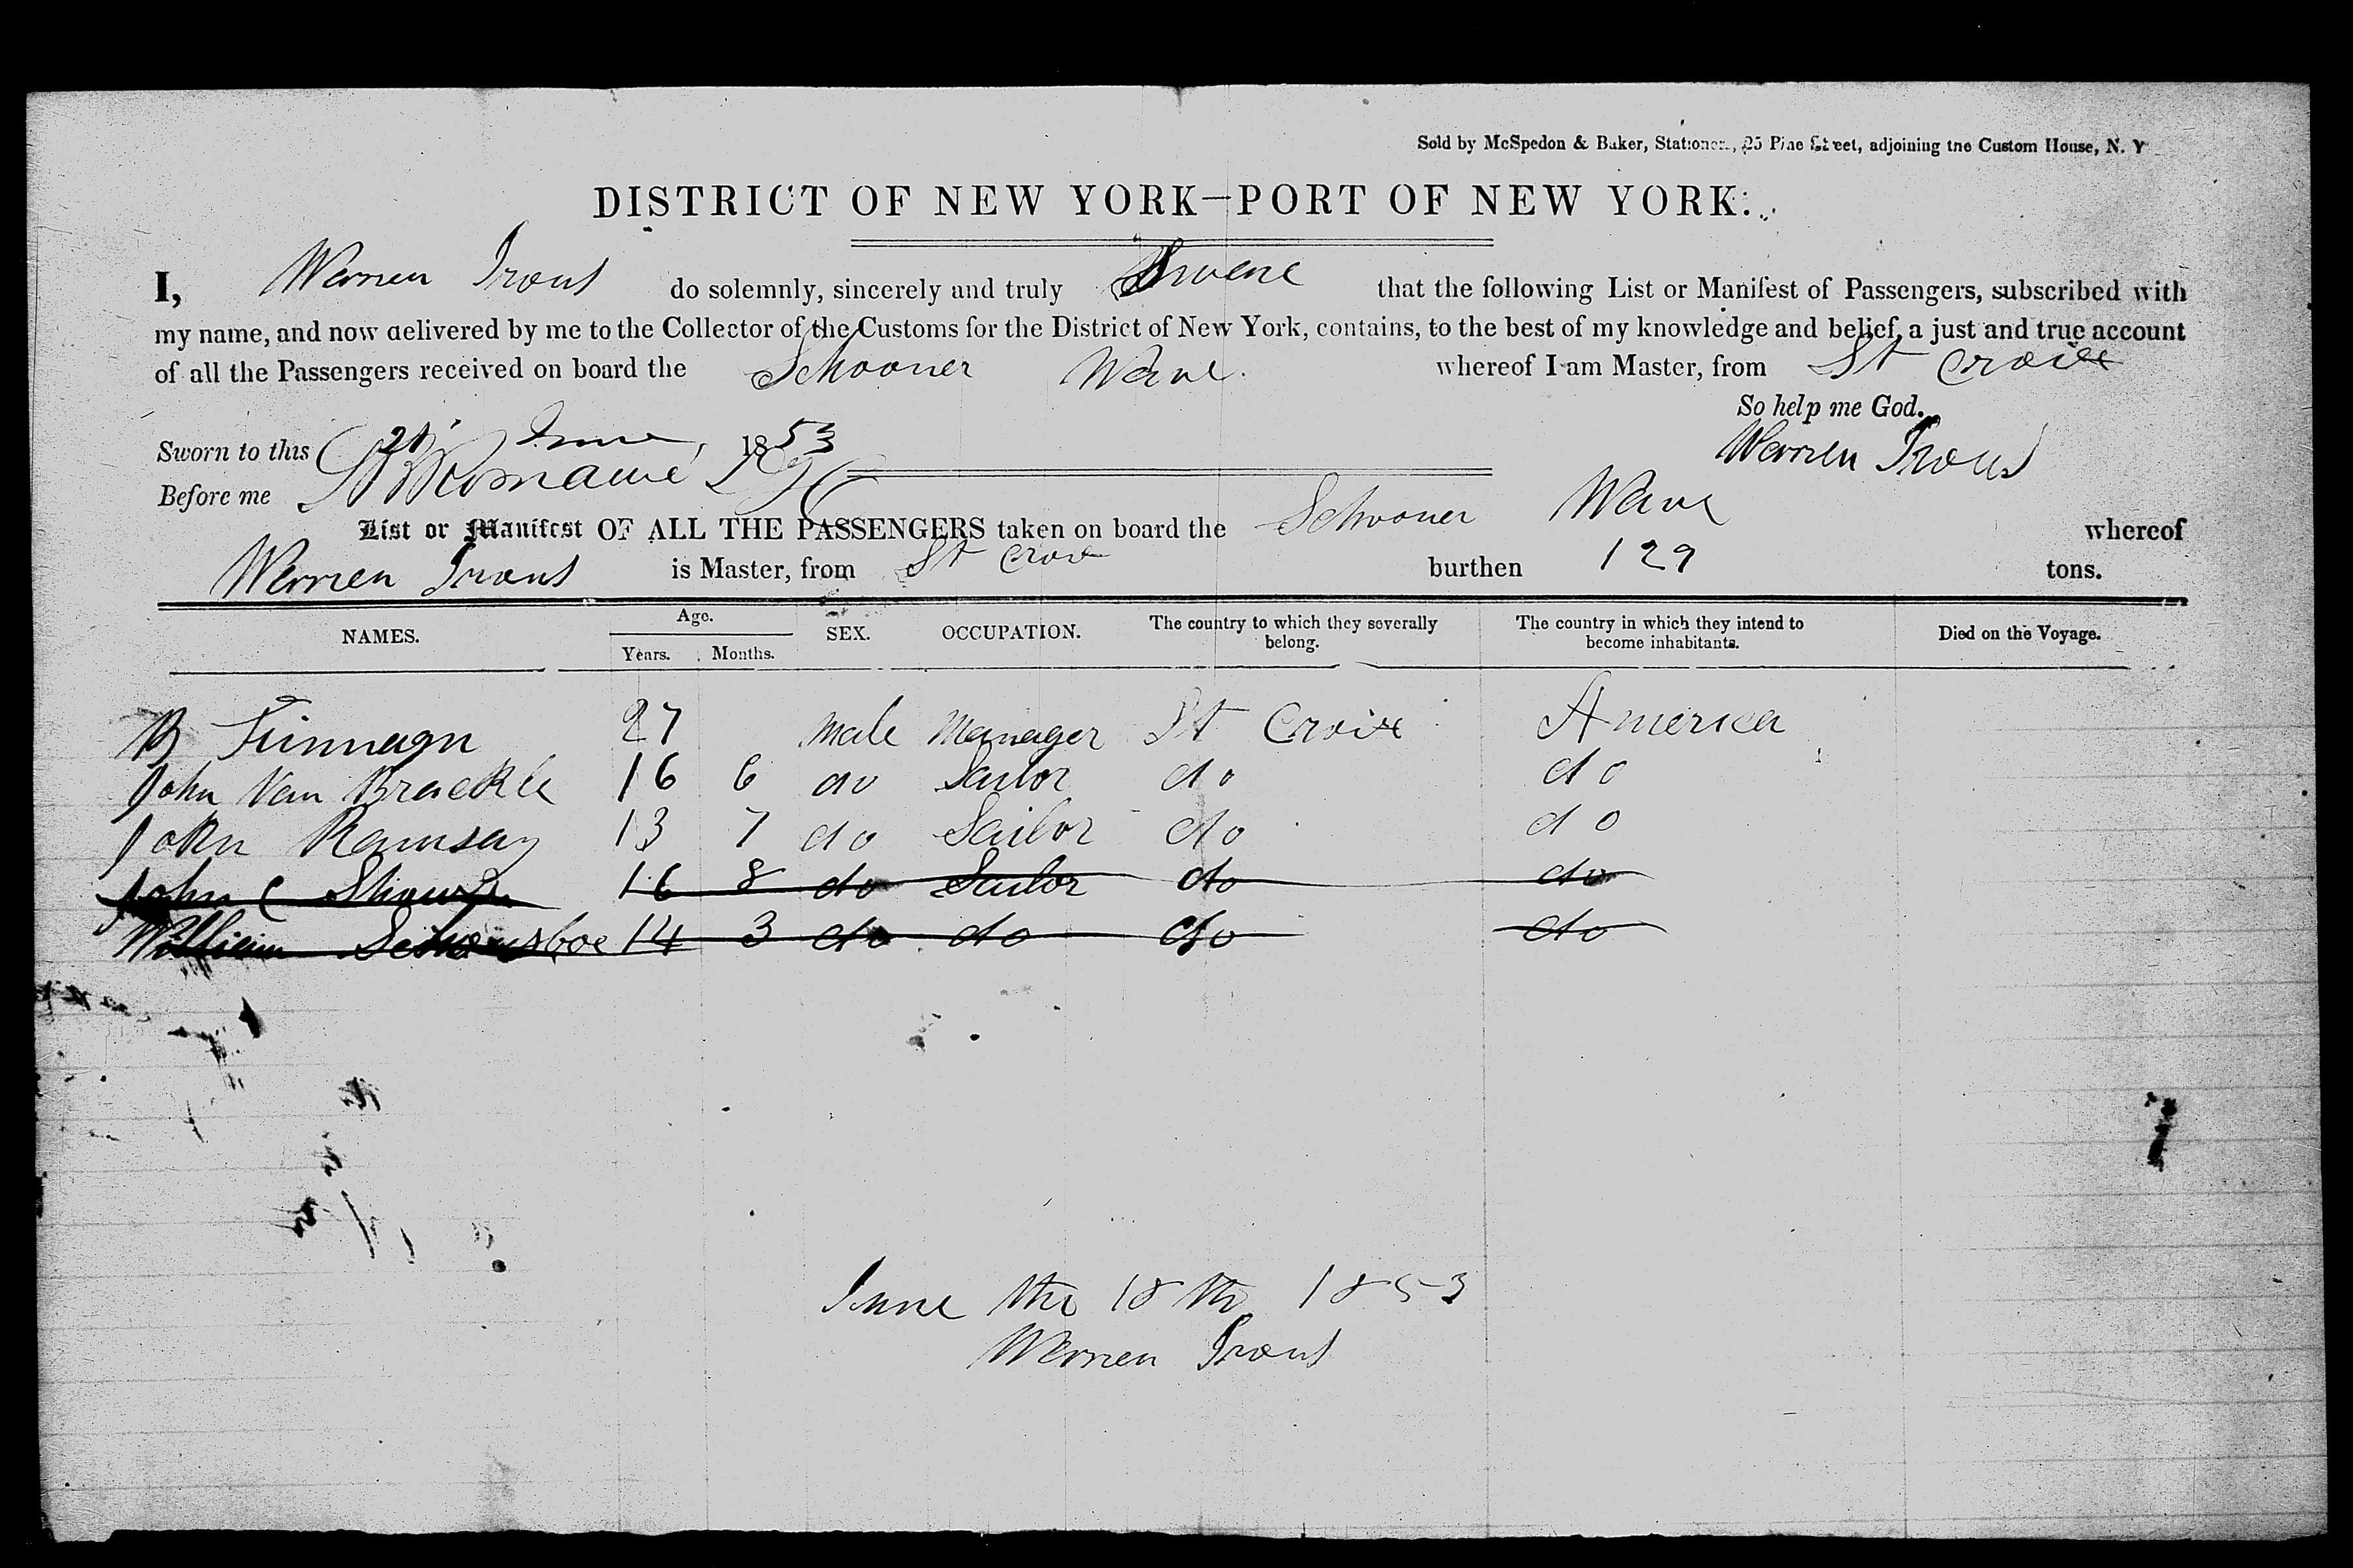 Sold by McSpedon & Baker, Stationers, 25 Pine Street, adjoining the Custom House, N. Y
DISTRICT OF NEW YORK—PORT OF NEW YORK.
I, Warren Irons do solemnly, sincerely and truly that the following List or Manifest of Passengers, subscribed with
my name, and now delivered by me to the Collector of the Customs for the District of New York, contains, to the best of my knowledge and belief, a just and true account
of all the Passengers received on board the Schooner Wave whereof I am Master, from St Croix
So help me God.
Sworn to this 21 June, 1853 Warren Irons
Before me
List or Manifest OF ALL THE PASSENGERS taken on board the Schooner Wave whereof
Warren Irons is Master, from St Croix burthen 129 tons.
NAMES. Age. Years. Months. SEX. OCCUPATION. The country to which they severally belong. The country in which they intend to become inhabitants. Died on the Voyage.
B Finnagn 27 male Manager St Croix America
John Van Brackle 16 6 do Sailor do do
John Ramsay 13 7 do Sailor do do
John C 16 8 do Sailor do do
William 14 3 do do do do
June the 18th 1853
Warren Irons